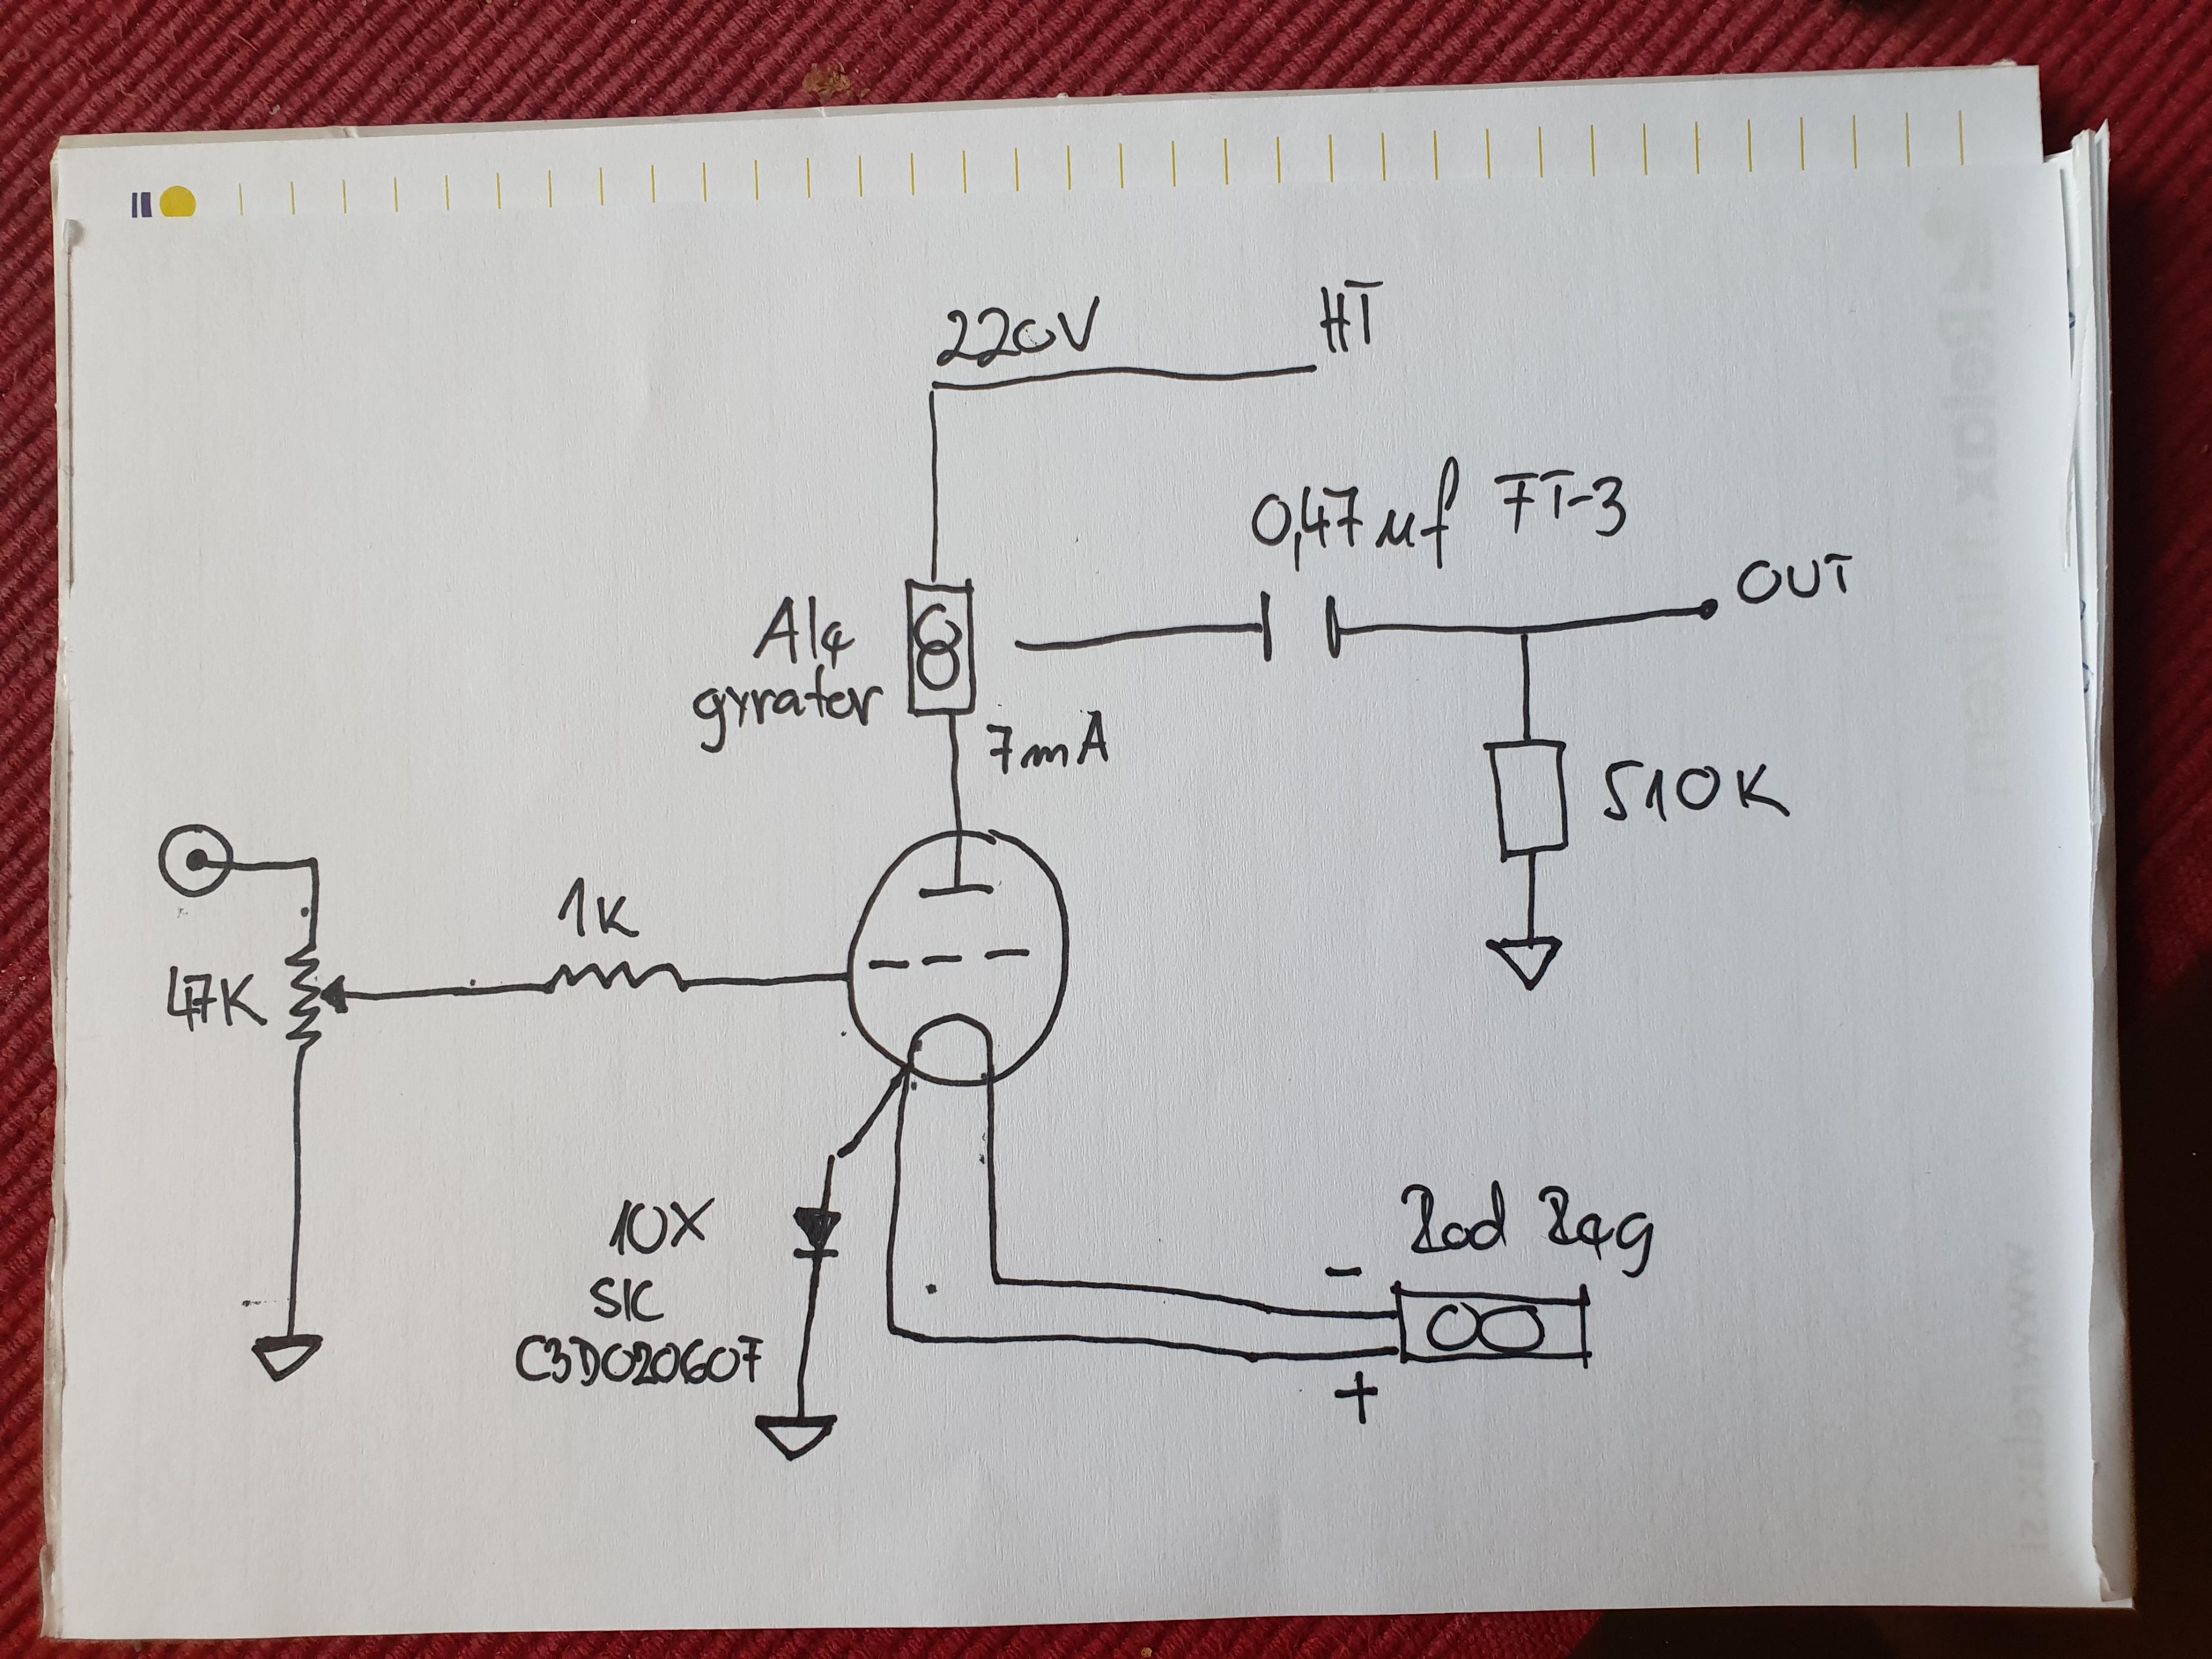 220V
HT
0,47 µf FT-3
OUT
Ale
gyrator
7mA
510K
1K
47K
10X
SIC
C3D02060F
Rod Reg
-
+